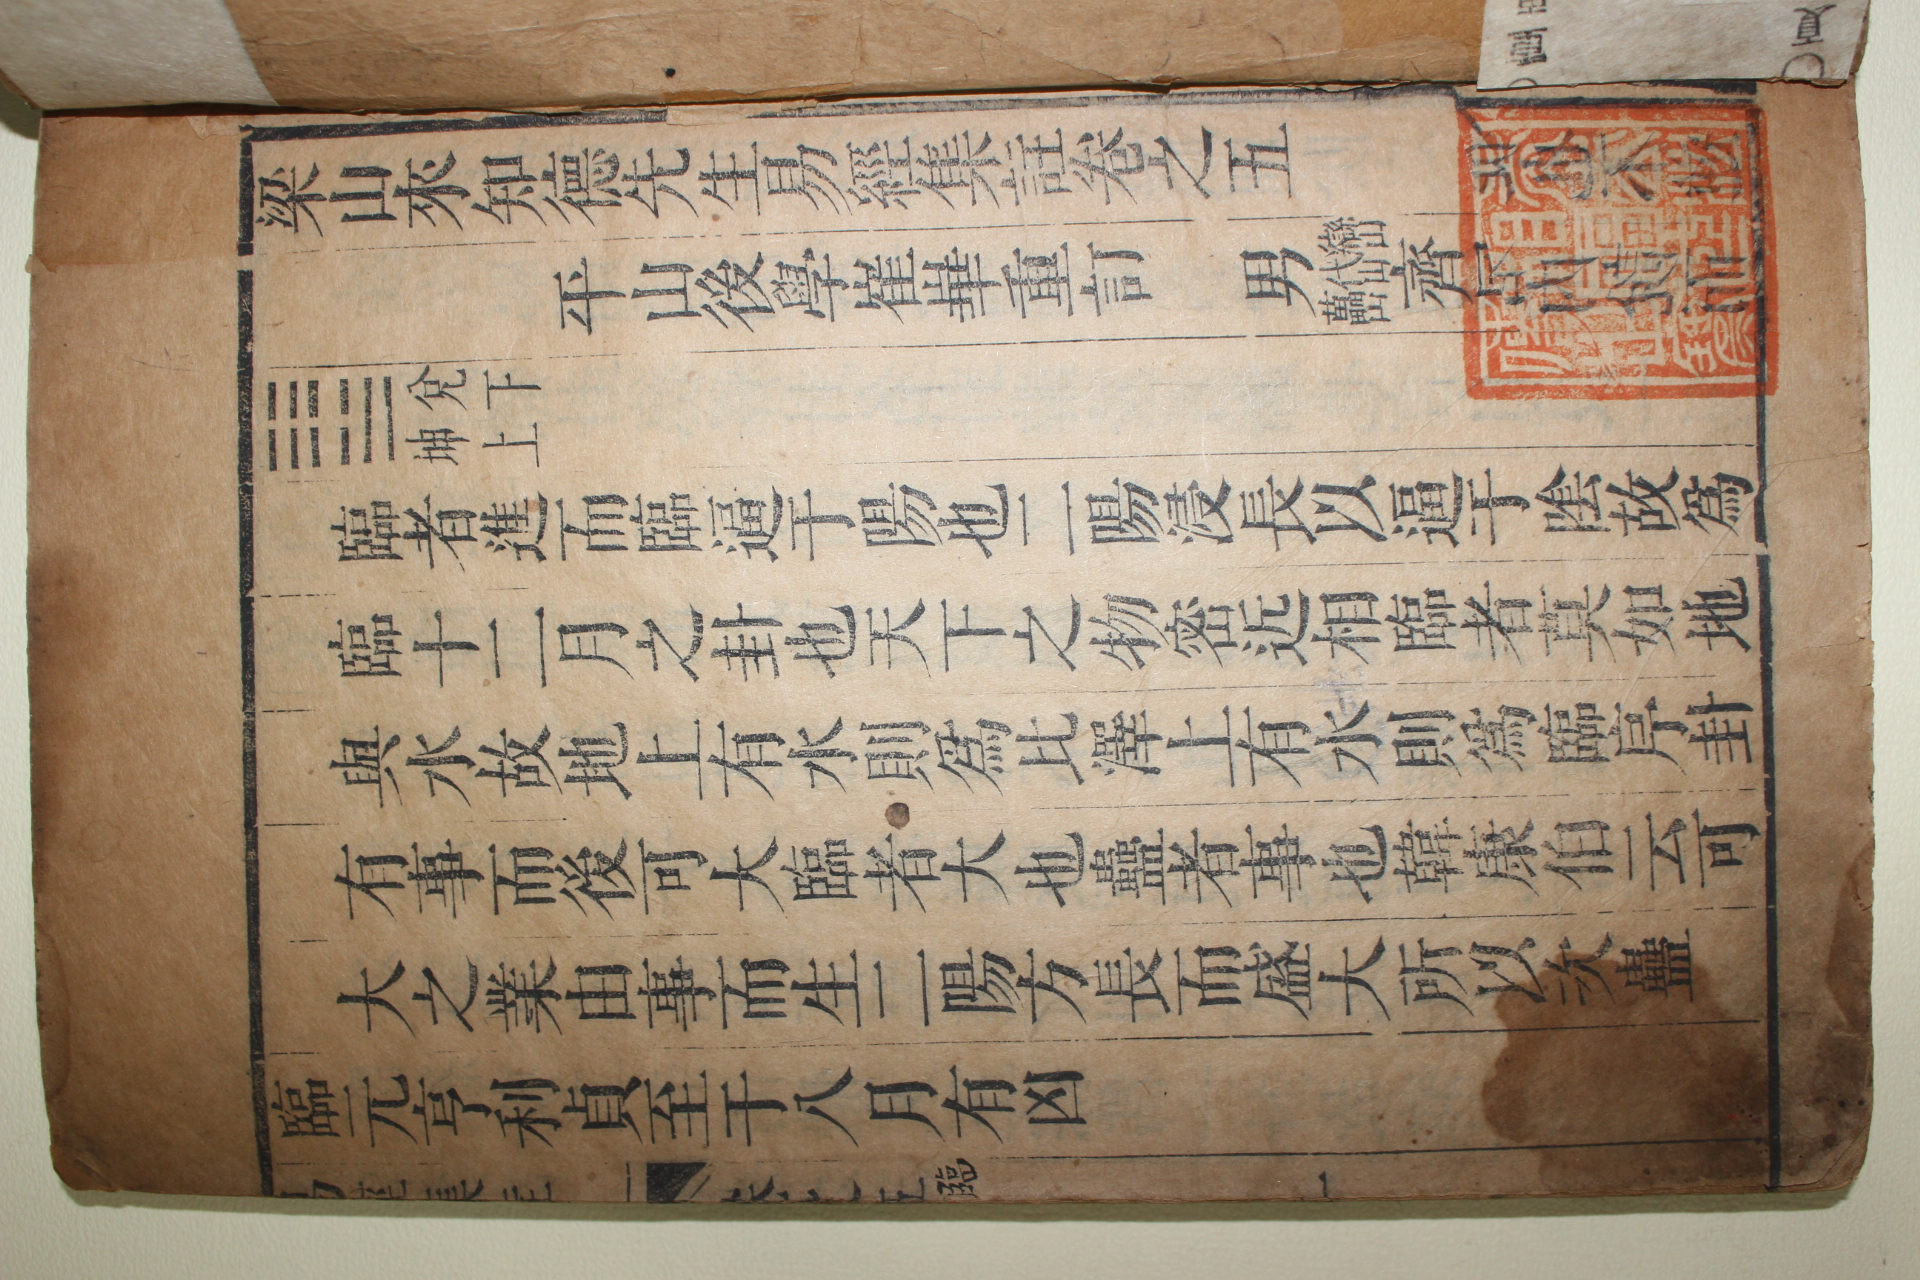 梁山來知德先生易經集註卷之五
平山後學崔華重訂 男 齊
兌下
坤上
臨者進而臨逼于陽也二陽浸長以逼于陰故為
臨十二月之卦也天下之物密近相臨者莫如地
與水故地上有水則為比澤上有水則為臨序卦
有事而後可大臨者大也蠱者事也韓康伯云可
大之業由事而生二陽方長而盛大所以次蠱
臨元亨利貞至于八月有凶
臨 一